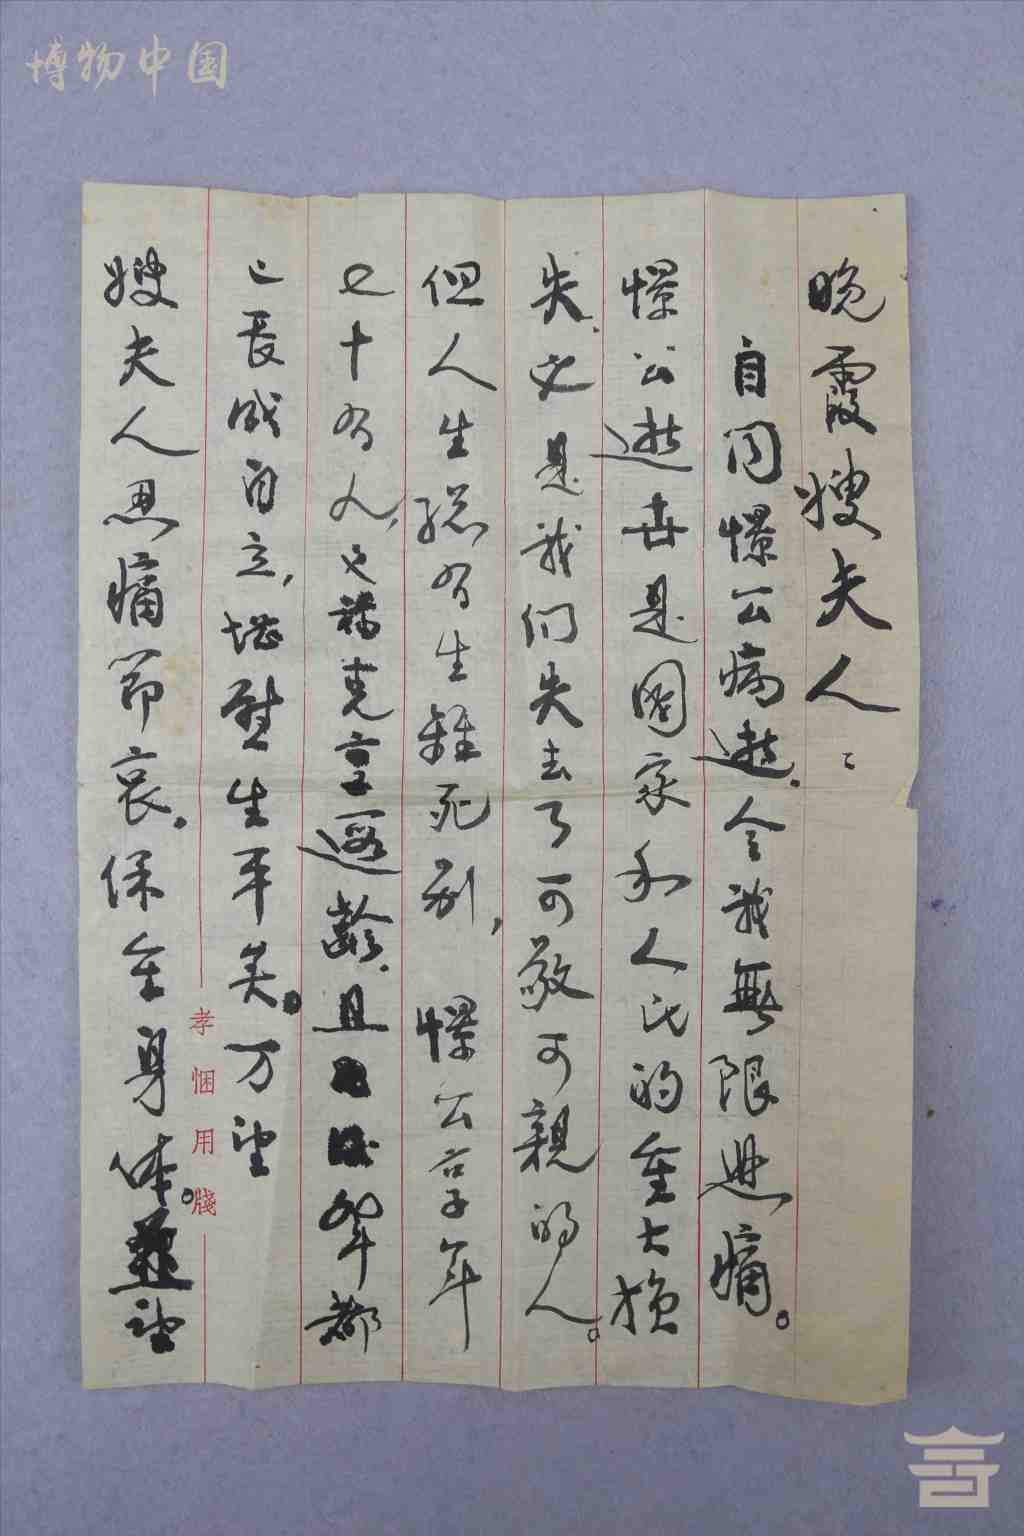 博物中国
晚霞嫂夫人：
自闻憬公病逝。令我無限悲痛。
憬公逝世是國家和人民的重大损
失、也是我们失去了可敬可親的人。
但人生总有生離死别，憬公享年
七十有八，已福寿享遐齡、且
都
已長成自立，堪慰生平矣。万望
嫂夫人思痛節哀。保重身体。并望
孝悃用牋